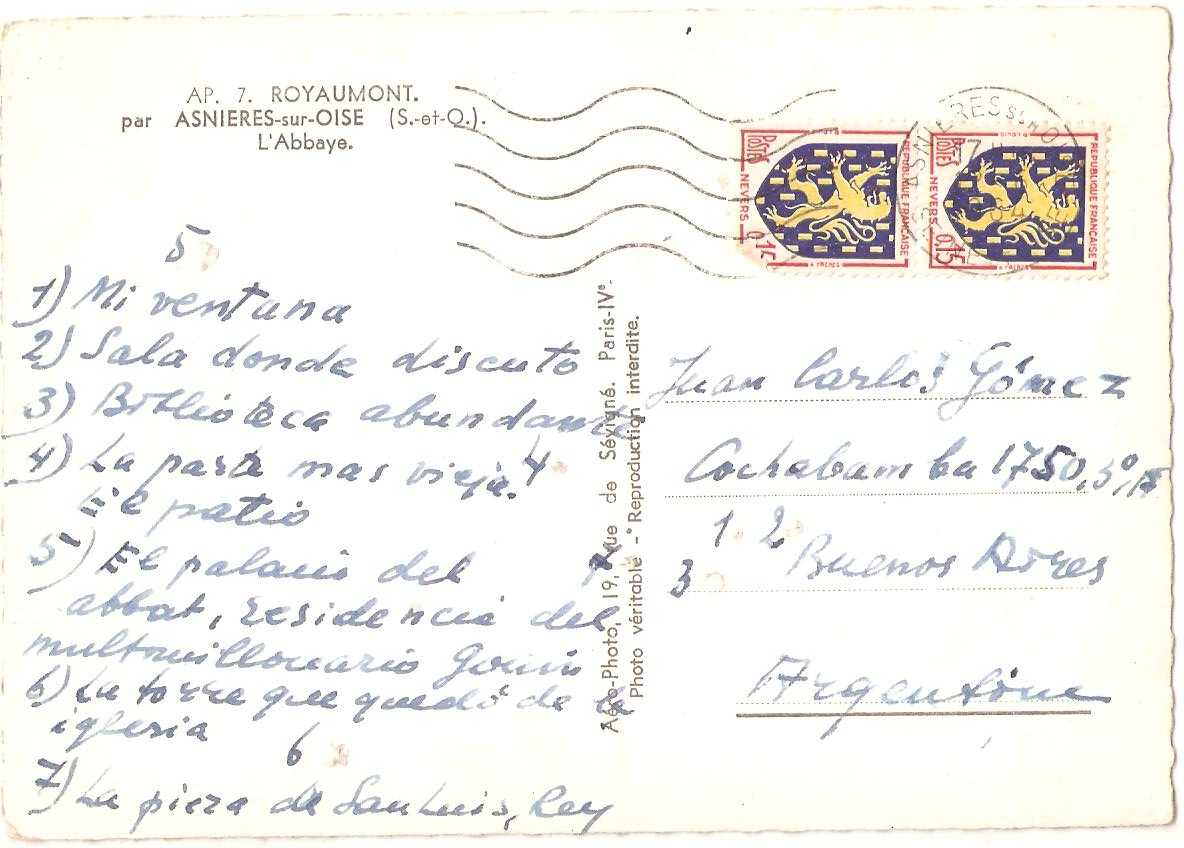 AP. 7. ROYAUMONT.
par ASNIERES-sur-OISE (S.-et-O.).
L'Abbaye.
POSTES
REPUBLIQUE FRANÇAISE
NEVERS 0,15
POSTES
REPUBLIQUE FRANÇAISE
NEVERS 0,15
5
1) Mi ventana
2) Sala donde discuto
3) Biblioteca abundante
4) La parte mas vieja. 4
El patio
5) El palacio del 7
abbat, residencia del
multimillonario Gouin
6) La torre que quedó de la
iglesia
6
7) La pieza de San Luis, Rey
Aéro-Photo, 19, rue de Sévigné. Paris-IVe.
Photo véritable - Reproduction interdite.
Juan Carlos Gómez
Cochabamba 1750, 3º,
1. 2. Buenos Aires
3
Argentine